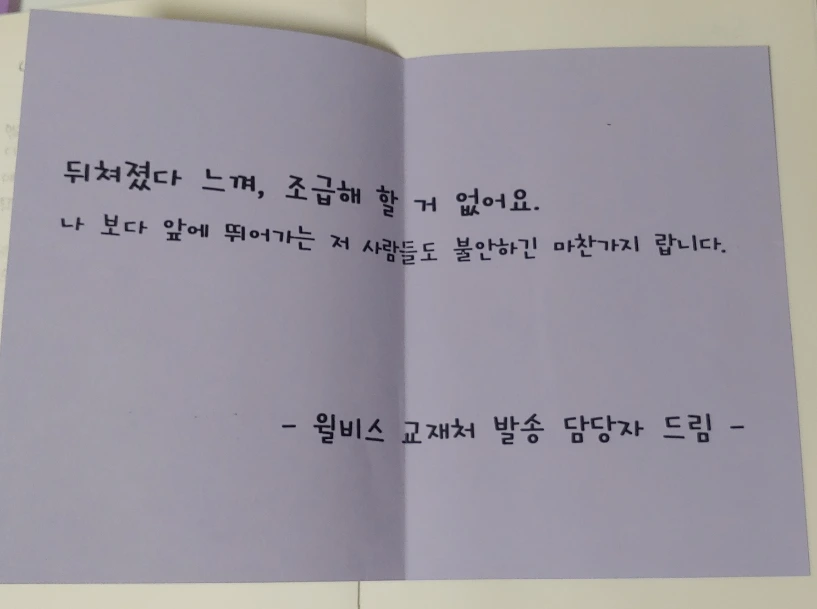 뒤쳐졌다 느껴, 조급해 할 거 없어요.
나 보다 앞에 뛰어가는 저 사람들도 불안하긴 마찬가지 랍니다.
- 윌비스 교재처 발송 담당자 드림 -